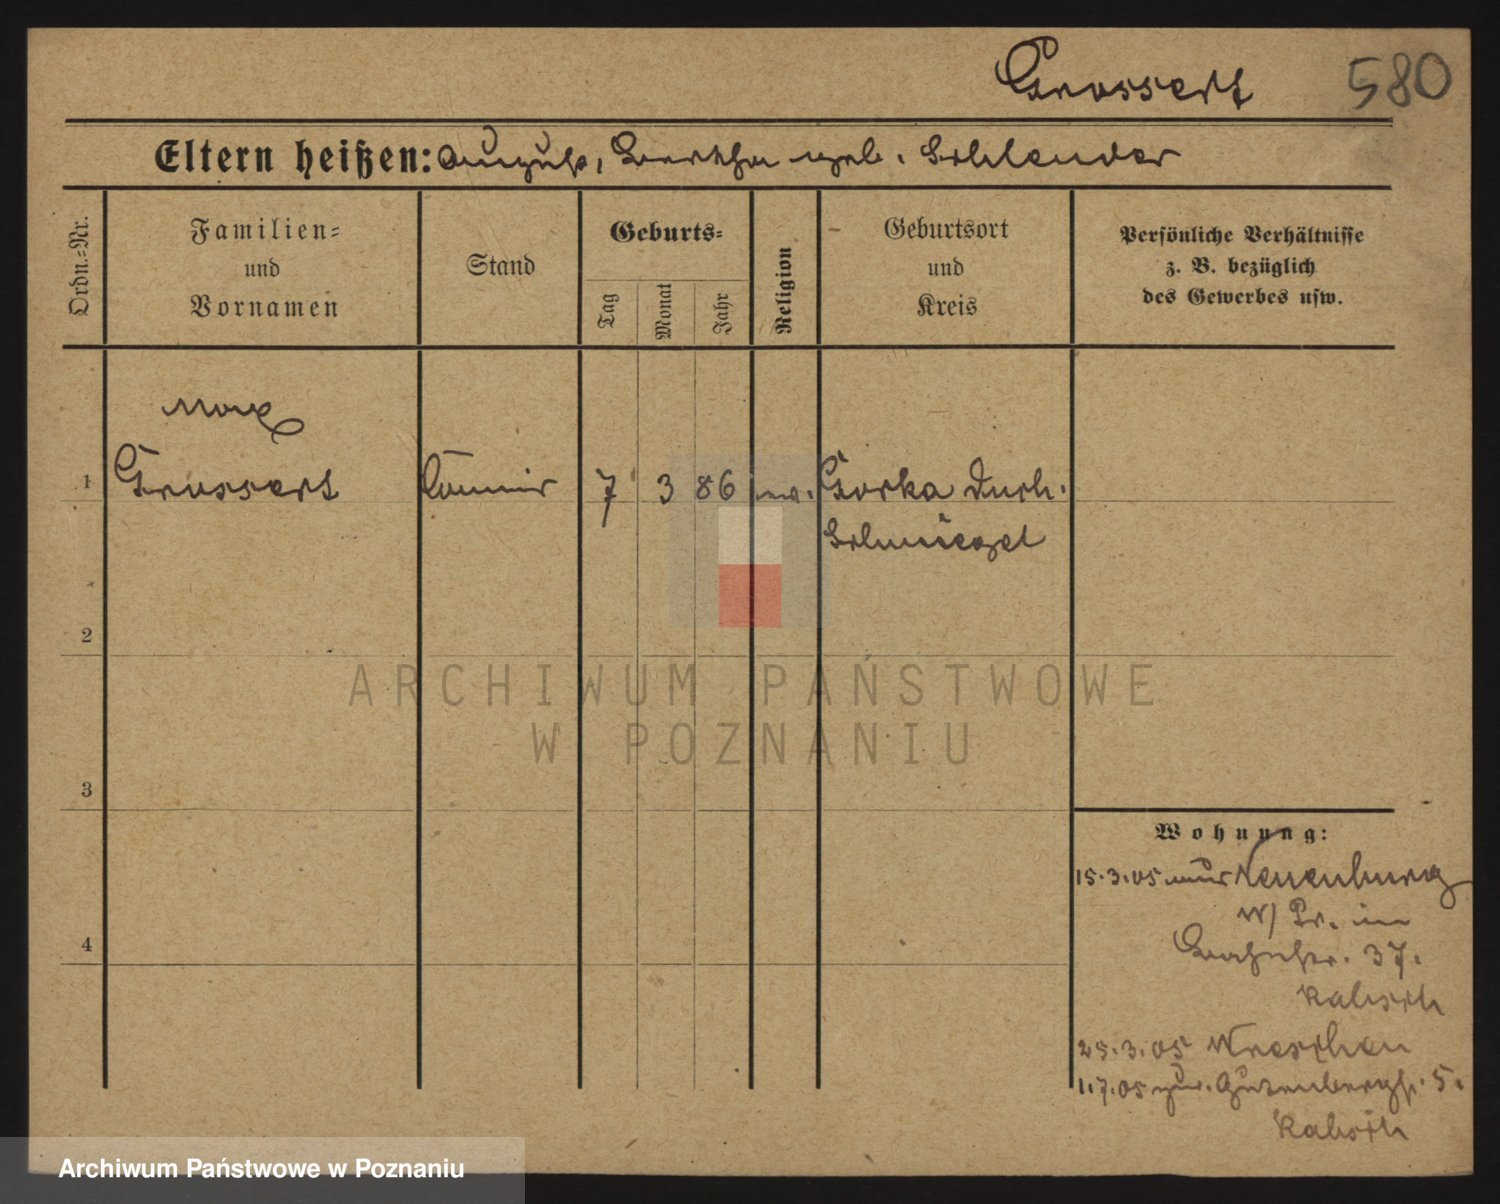 Grossert 580
Eltern heißen: August, Bertha geb. Schlender
Ordn.-Nr.
Familien-
und
Vornamen
Stand
Geburts-
Tag
Monat
Jahr
Religion
Geburtsort
und
Kreis
Persönliche Verhältnisse
z. B. bezüglich
des Gewerbes usw.
Max
1 Grossert Commis 7 3 86 ev. Gorka Duch.
Schmiegel
2
ARCHIWUM PAŃSTWOWE
W POZNANIU
3
Wohnung:
4
15.3.05 aus Neuenburg
W/Pr. in
37.
25.3.05 Wreschen
1.7.05 zur. Gutenbergstr. 5.
Archiwum Państwowe w Poznaniu